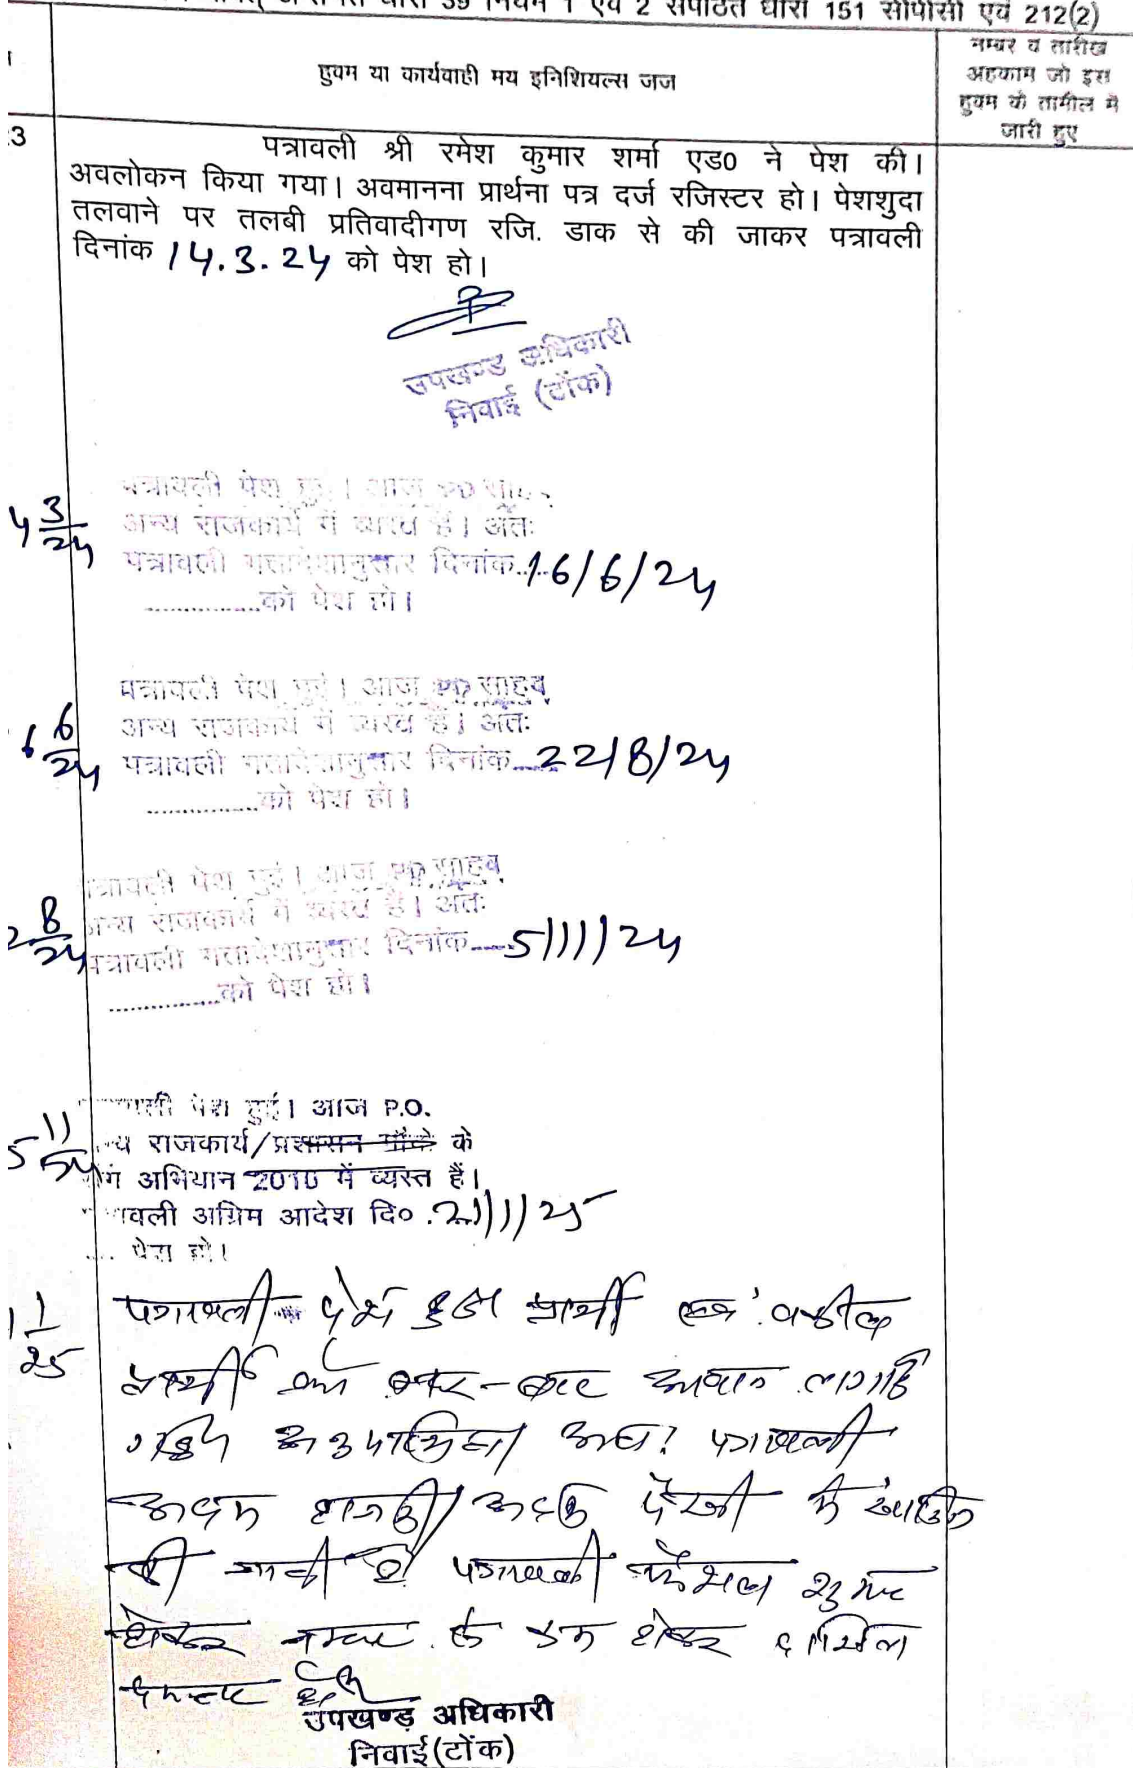 धारा 39 नियम 1 एवं 2 सपठित धारा 151 सीपीसी एवं 212(2)
हुक्म या कार्यवाही मय इनिशियल्स जज
नम्बर व तारीख
अहकाम जो इस
हुक्म की तामील में
जारी हुए
3
पत्रावली श्री रमेश कुमार शर्मा एड0 ने पेश की।
अवलोकन किया गया। अवमानना प्रार्थना पत्र दर्ज रजिस्टर हो। पेशशुदा
तलवाने पर तलबी प्रतिवादीगण रजि. डाक से की जाकर पत्रावली
दिनांक 14.3.24 को पेश हो।
उपखण्ड अधिकारी
निवाई (टोंक)
4 3/24
पत्रावली पेश हुई। आज PO
अन्य राजकार्य में व्यस्त हैं। अतः
पत्रावली दिनांक.....16/6/24
...............को पेश हो।
6 6/24
पत्रावली पेश हुई। आज PO साहब
अन्य राजकार्य में व्यस्त हैं। अतः
पत्रावली दिनांक.....22/8/24
...............को पेश हो।
2 8/24
पत्रावली पेश हुई। आज PO साहब
अन्य राजकार्य में व्यस्त हैं। अतः
पत्रावली दिनांक.....5/11/24
...............को पेश हो।
5 11/24
पेश हुई। आज P.O.
राजकार्य/प्रशासन गाँवो के
अभियान 2010 में व्यस्त हैं।
अग्रिम आदेश दि० .21/1/25
.... पेश हो।
1 1/25
पत्रावली पेश हुई प्रार्थी एवं वकील
प्रार्थी को बार-बार आवाज लगाई
गई अनुपस्थित। अतः पत्रावली
अदम हाजरी/अदम पैरवी में खारिज
की जाती है पत्रावली फैसल शुमार
होकर नम्बर से कम होकर दाखिल
दफ्तर हो
उपखण्ड अधिकारी
निवाई(टोंक)